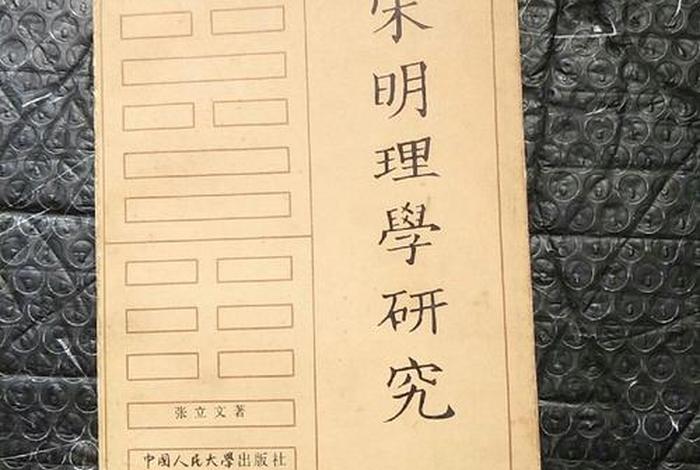 宋明理學研究
张立文著
中国人民大学出版社